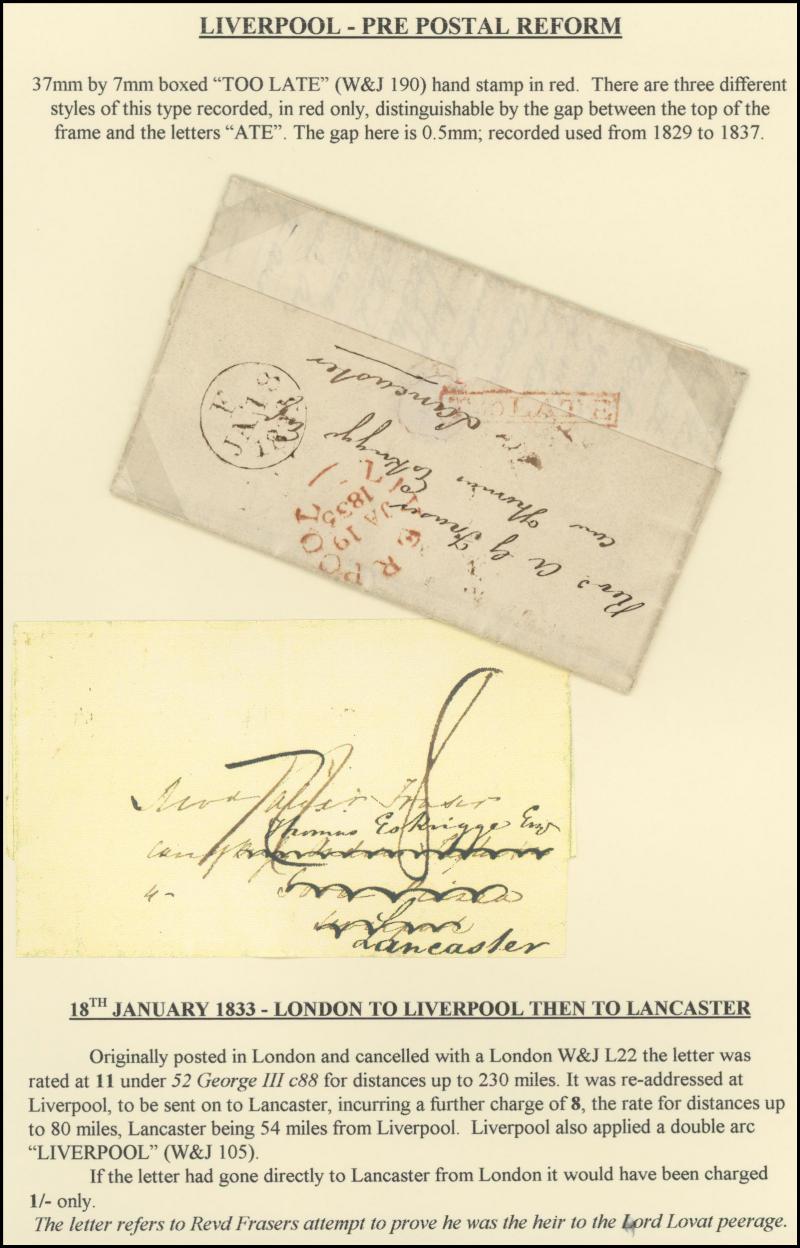 LIVERPOOL - PRE POSTAL REFORM
37mm by 7mm boxed “TOO LATE” (W&J 190) hand stamp in red. There are three different
styles of this type recorded, in red only, distinguishable by the gap between the top of the
frame and the letters “ATE”. The gap here is 0.5mm; recorded used from 1829 to 1837.
Lancaster
Thomas Eskrigge
Revd A G Fraser
JA 19
1835
Fraser
Thomas Eskrigge Esqr
Lancaster
18TH JANUARY 1833 - LONDON TO LIVERPOOL THEN TO LANCASTER
Originally posted in London and cancelled with a London W&J L22 the letter was
rated at 11 under 52 George III c88 for distances up to 230 miles. It was re-addressed at
Liverpool, to be sent on to Lancaster, incurring a further charge of 8, the rate for distances up
to 80 miles, Lancaster being 54 miles from Liverpool. Liverpool also applied a double arc
“LIVERPOOL” (W&J 105).
If the letter had gone directly to Lancaster from London it would have been charged
1/- only.
The letter refers to Revd Frasers attempt to prove he was the heir to the Lord Lovat peerage.